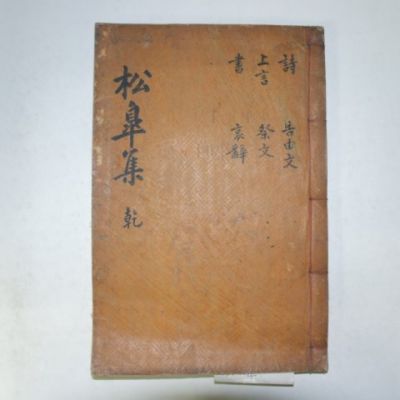 松皐集 乾
詩 告由文
上言 祭文
書 哀辭